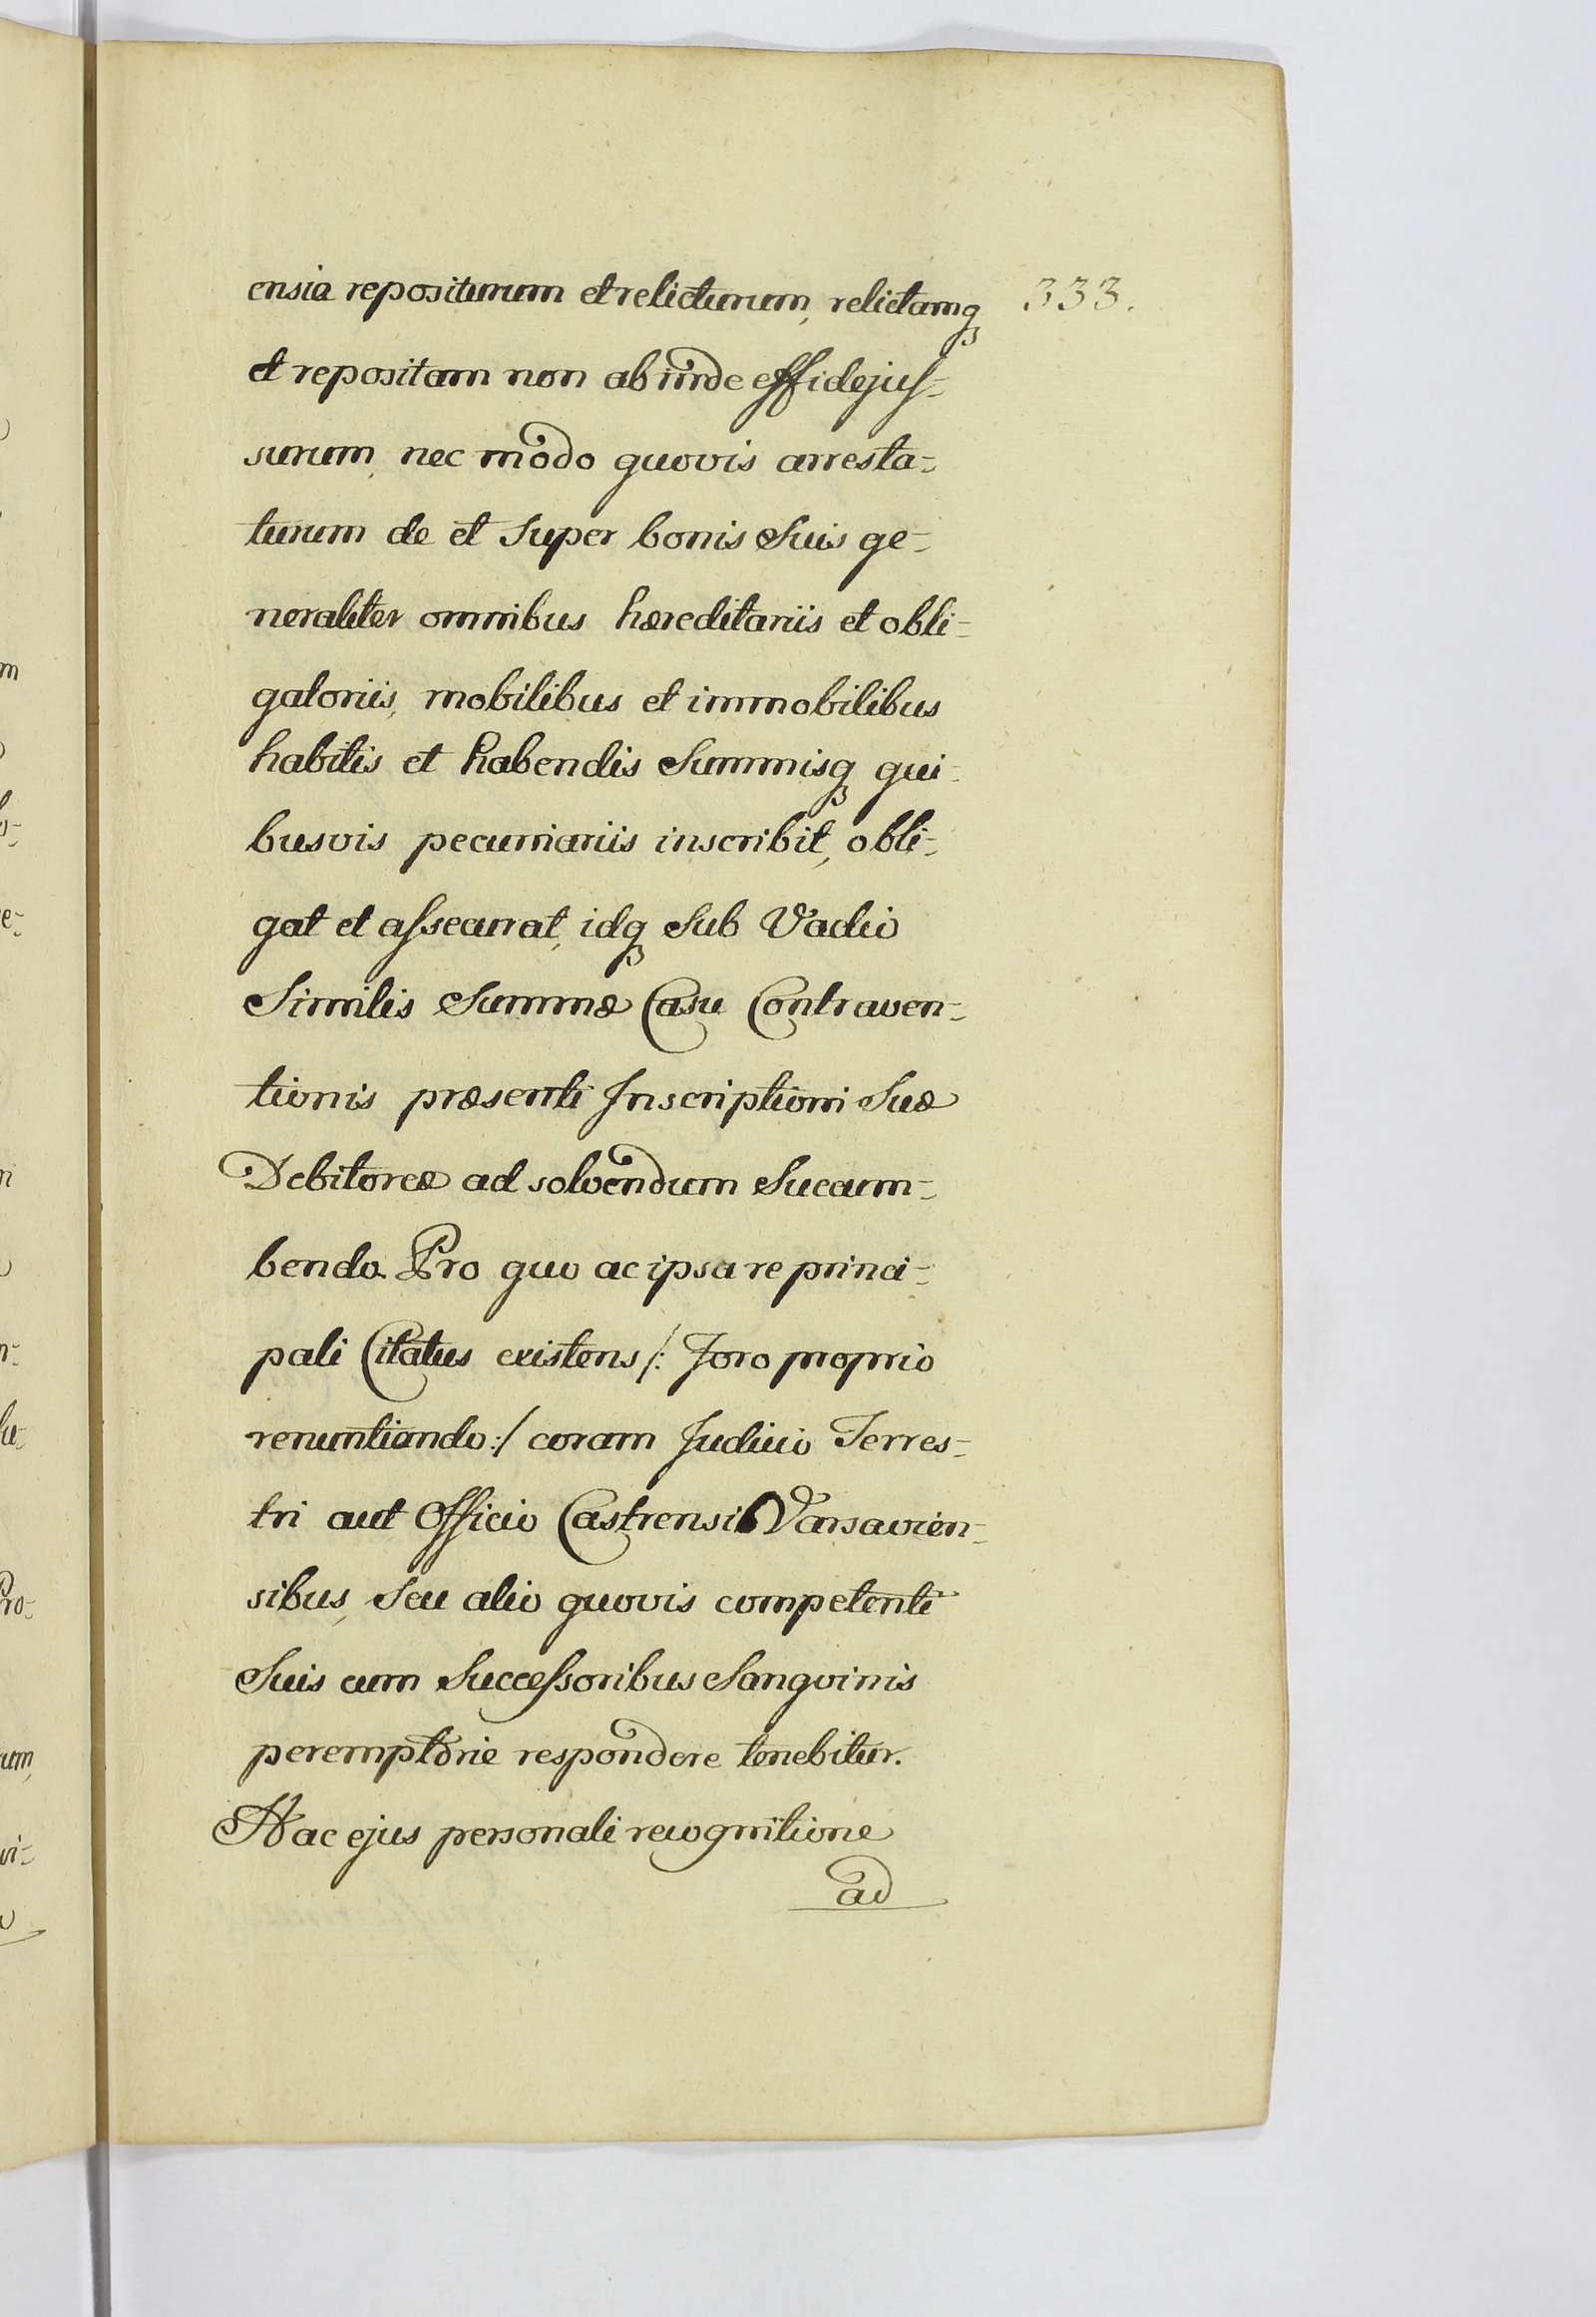 ensia repositurum et relicturum, relictamq3 333.
et repositam non abinde effidejus-
surum, nec modo quovis arresta-
turum de et super bonis Suis ge-
neraliter omnibus hæreditariis et obli-
gatoriis, mobilibus et immobilibus
habitis et habendis Summisq3 qui-
busvis pecuniariis inscribit, obli-
gat et assecurat, idq3 Sub Vadio
Similis Summæ Casu Contraven-
tionis præsenti Inscriptioni Suæ
Debitoreæ ad solvendum Succum-
bendo. Pro quo ac ipsa re princi-
pali Citatus existens /: Foro proprio
renuntiando :/ coram Judicio Terres-
tri aut Officio Castrensi Varsavien-
sibus, Seu alio quovis competenti
Suis cum Successoribus Sangvinis
peremptorie respondere tenebitur.
Hac ejus personali recognitione
ad